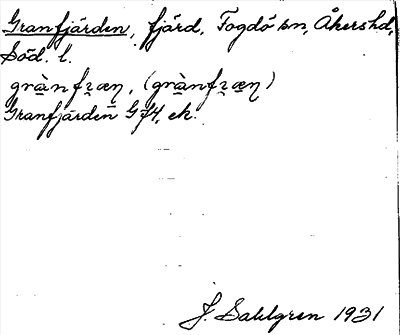 Granfjärden, fjärd, Fogdö sn, Åkershd,
Söd. l.
grànfꭋæƞ, (grànfꭋæƞ)
Granfjärden G74, ek.
J. Sahlgren 1931